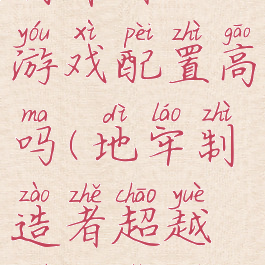 yóu xì pèi zhì gāo
游戏配置高
ma dì láo zhì
吗(地牢制
zào zhě chāo yuè
造者超越